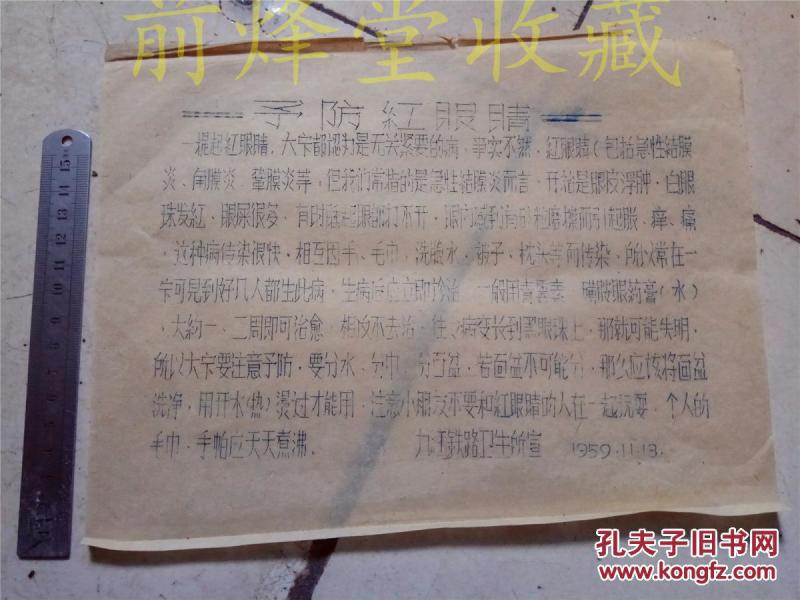 前烽堂收藏
予防紅眼睛
一提起紅眼睛，大家都认为是无关紧要的病，事实不然，紅眼睛（包括急性結膜
炎、角膜炎、鞏膜炎等，但我们常指的是急性結膜炎而言，开始是眼皮浮肿，白眼
珠发紅，眼屎很多，有时睡起眼都打不开，眼内感到有砂粒磨擦而引起胀、痒、痛
，这种病传染很快，相互因手、毛巾、洗脸水、被子、枕头等而传染，所以常在一
家可見到好几人都生此病，生病后应立即診治，一般用青霉素、磺胺眼药膏（水）
，大約一、二周即可治愈，相反不去治，往々病变长到黑眼珠上，那就可能失明，
所以大家要注意予防，要分水、分巾、分面盆，若面盆不可能分，那么应该将面盆
洗净，用开水（热）燙过才能用，注意小朋友不要和紅眼睛的人在一起玩耍，个人的
毛巾、手帕应天天煮沸．
九江铁路卫生所宣 1959.11.13.
孔夫子旧书网
www.kongfz.com